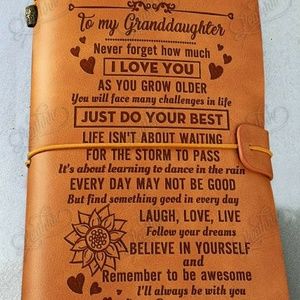 To my Granddaughter
Never forget how much
I LOVE YOU
AS YOU GROW OLDER
You will face many challenges in life
JUST DO YOUR BEST
LIFE ISN'T ABOUT WAITING
FOR THE STORM TO PASS
It's about learning to dance in the rain
EVERY DAY MAY NOT BE GOOD
But find something good in every day
LAUGH, LOVE, LIVE
Follow your dreams
BELIEVE IN YOURSELF
and
Remember to be awesome
I'll always be with you